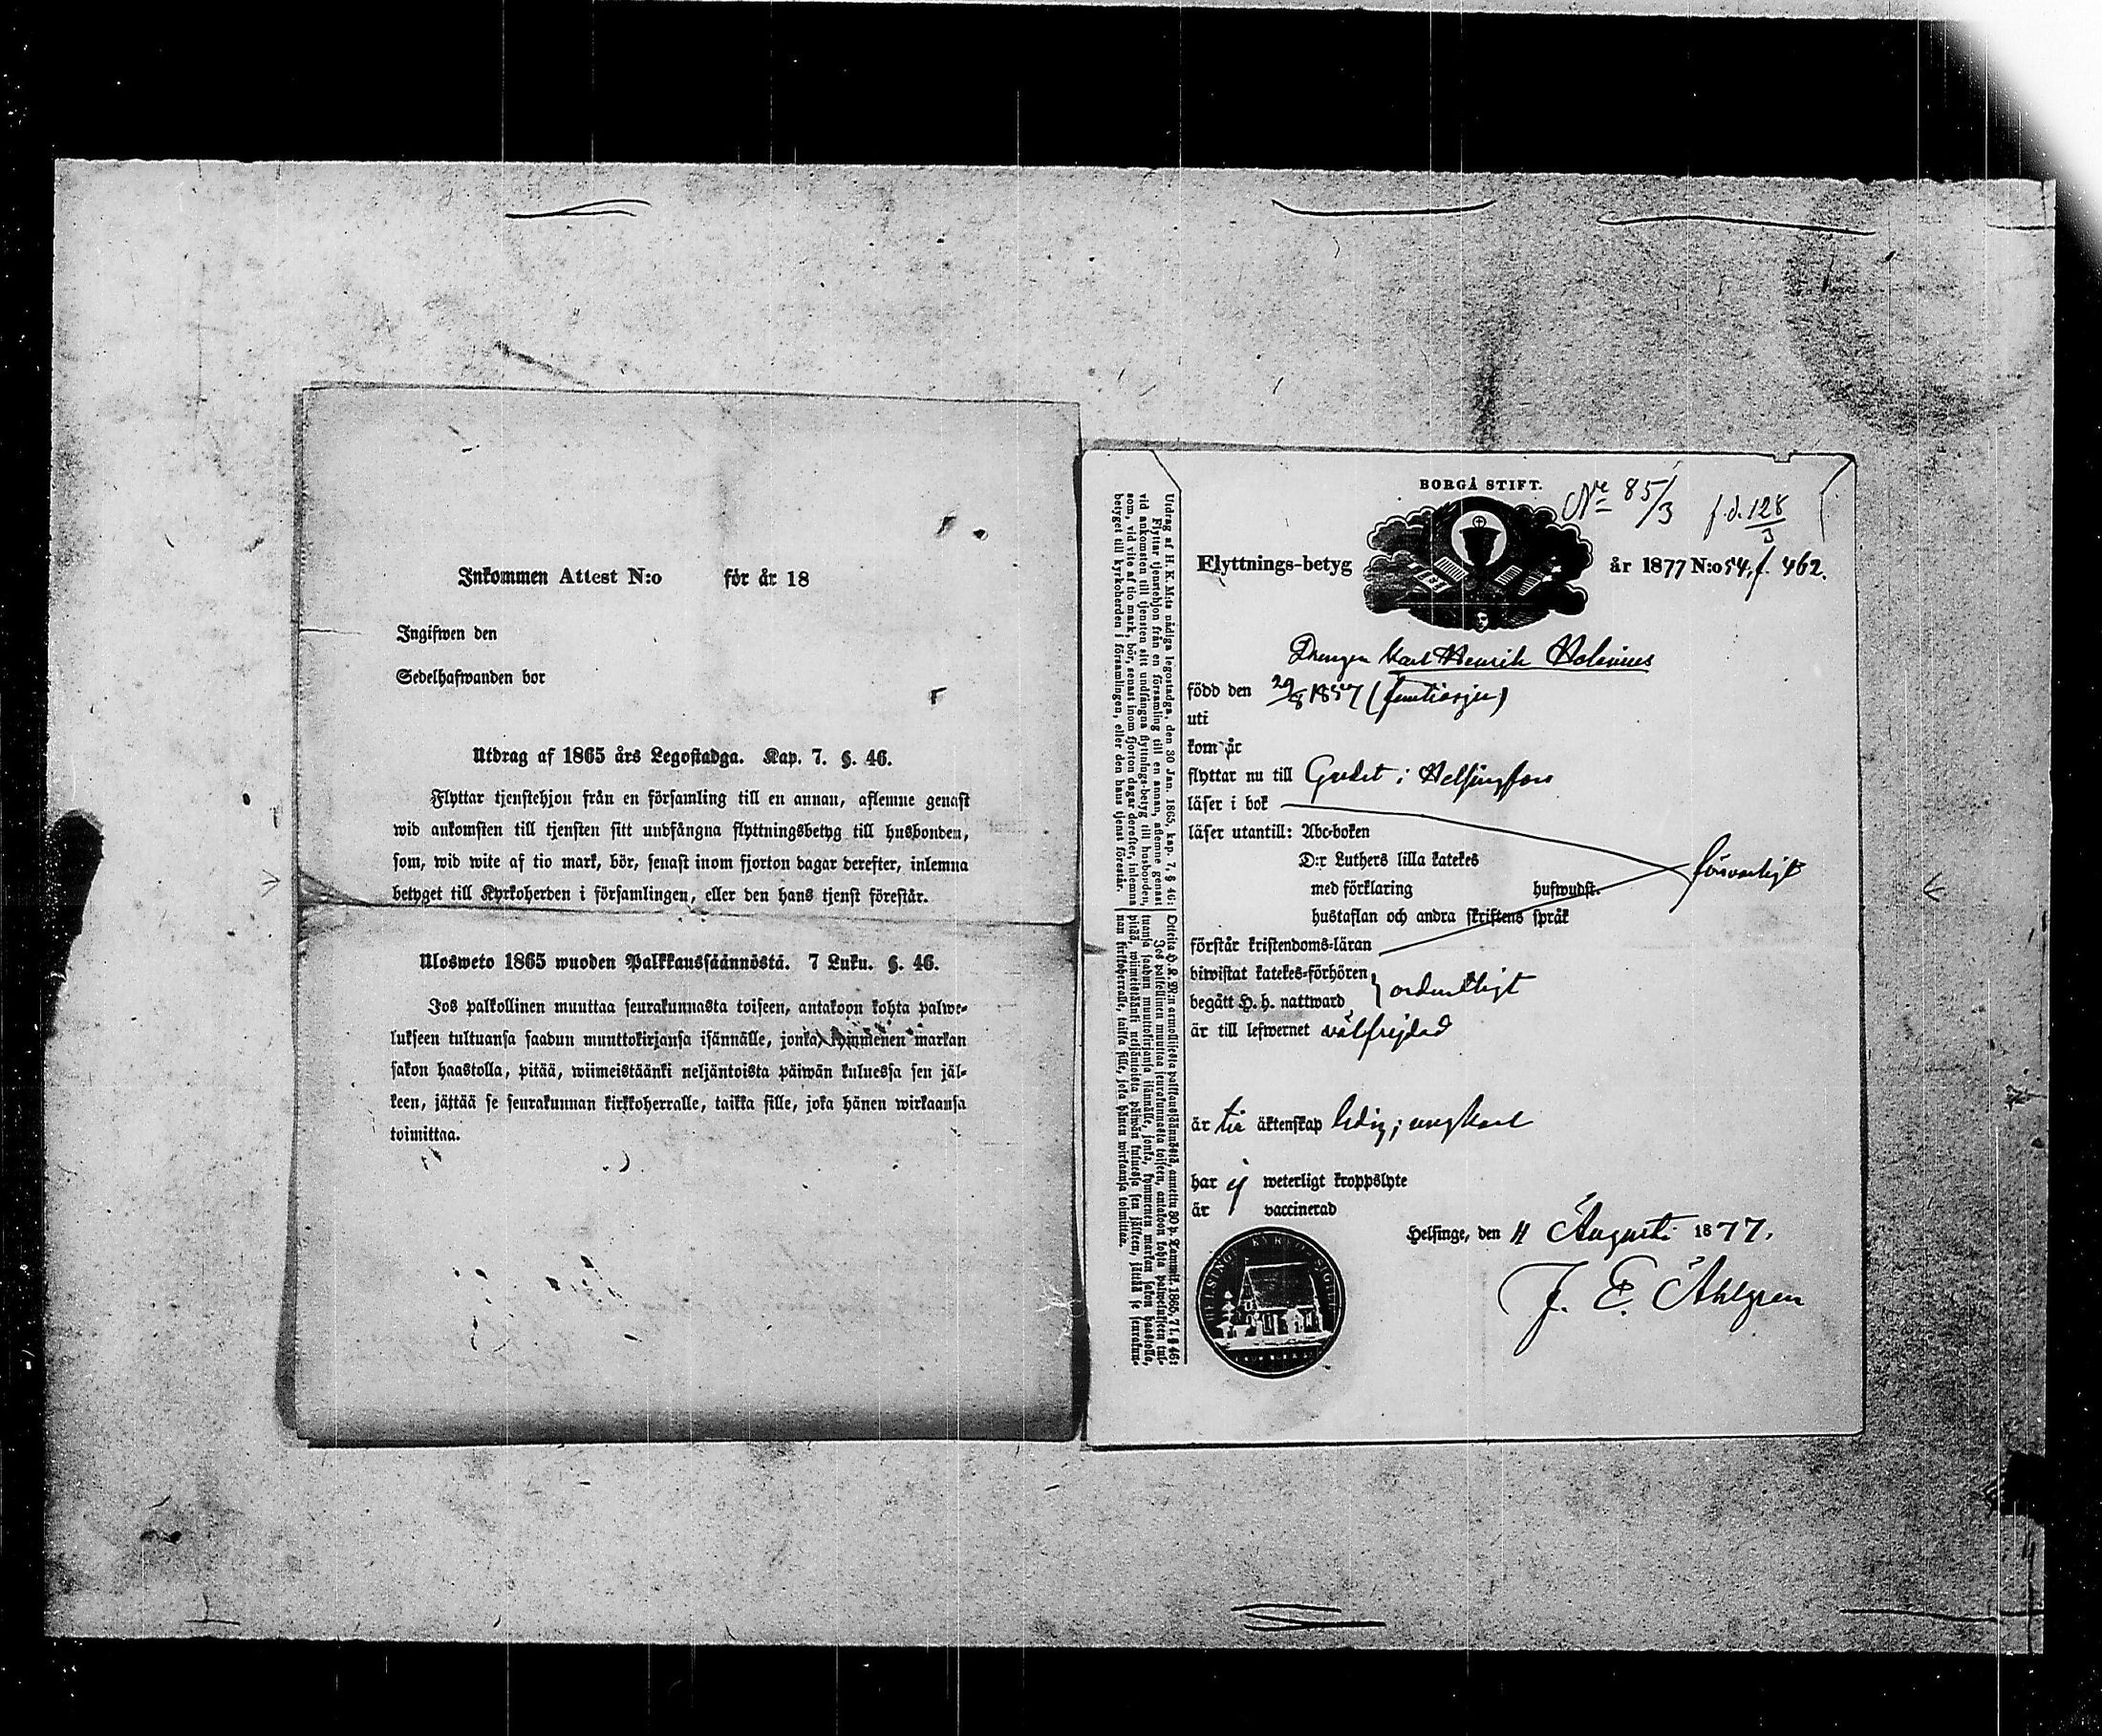 Inkommen Attest N:o för år 18
Ingifwen den
Sedelhafwanden bor
Utdrag af 1865 års Legostadga. Kap. 7. §. 46.
Flyttar tjenstehjon från en församling till en annan, aflemne genast
wid ankomsten till tjensten sitt undfångna flyttningsbetyg till husbonden,
som, wid wite af tio mark, bör, senast inom fjorton dagar derefter, inlemna
betyget till Kyrkoherden i församlingen, eller den hans tjenst förestår.
Ulosweto 1865 wuoden Palkkaussäännöstä. 7 Luku. §. 46.
Jos palkollinen muuttaa seurakunnasta toiseen, antakoon kohta palwe-
lukseen tultuansa saadun muuttokirjansa isännälle, jonka, kymmenen markan
sakon haastolla, pitää, wiimeistäänki neljäntoista päiwän kuluessa sen jäl-
keen, jättää se seurakunnan kirkkoherralle, taikka sille, joka hänen wirkaansa
toimittaa.
Utdrag af H. K. M:ts nådiga legostadga, den 30 Jan. 1865, kap. 7, § 46:
Flyttar tjenstehjon från en församling till en annan, aflemne genast
vid ankomsten till tjensten sitt undfångna flyttnings-betyg till husbonden,
som, vid vite af tio mark, bör, senast inom fjorton dagar derefter, inlemna
betyget till kyrkoherden i församlingen, eller den hans tjenst förestår.
Otteita H. K. M:n armollisesta palkkaussäännöstä, annettu 30 p. Tammik. 1865, 7 l. § 46:
Jos palkollinen muuttaa seurakunnasta toiseen, antakoon kohta palwelukseen tul-
tuansa saadun muuttokirjansa isännälle, jonka, kymmenen markan sakon haastolla,
pitää, wiimeistäänki neljäntoista päiwän kuluessa sen jälkeen, jättää se seurakun-
nan kirkkoherralle, taikka sille, joka hänen wirkaansa toimittaa.
BORGÅ STIFT.
No 85/3 f.d. 128/3
Flyttnings-betyg år 1877 N:o 54, f. 462.
Drengen Karl Henrik Holenius
född den 29/8 1857 (femtiosju)
uti
kom år
flyttar nu till Godet i Helsingfors
läser i bok
läser utantill: Abc-boken
D:r Luthers lilla katekes
försvarligt
med förklaring hufwudst.
hustaflan och andra skriftens språk
förstår kristendoms-läran
biwistat katekes-förhören
ordentligt
begått H. H. nattward
är till lefwernet välfrejdad
är till äktenskap ledig; ungkarl
har ej weterligt kroppslyte
är vaccinerad
Helsinge, den 11 Augusti 1877.
J. E. Åhlgren
HELSINGE KYRKO SIGILL